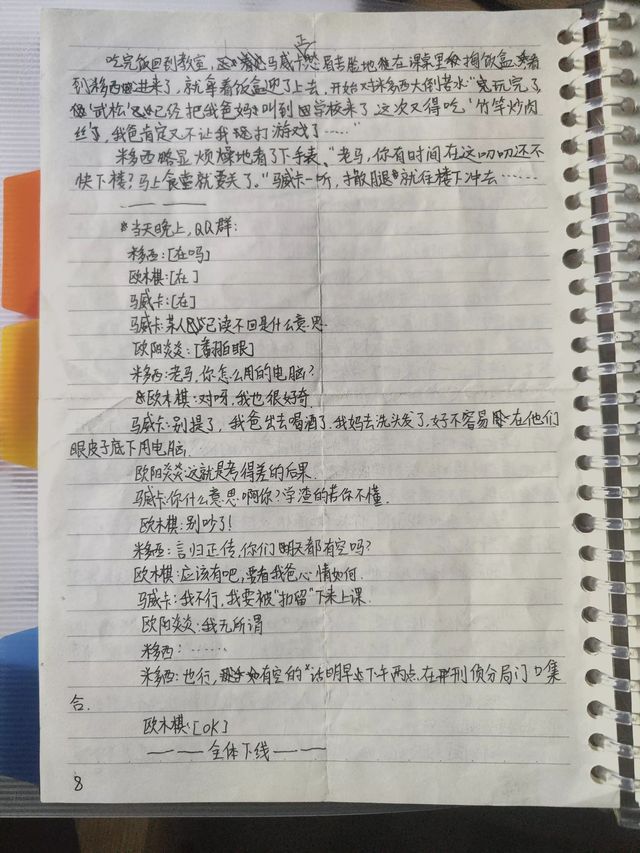 吃完饭回到教室，马威卡正愁眉苦脸地在课桌里掏饭盒,看
到米多西进来了，就拿着饭盒迎了上去，开始对米多西大倒苦水“完玩完了,
"武松"已经把我爸妈叫到学校来了,这次又得吃'竹竿炒肉
丝'了，我爸肯定又不让我打游戏了……"
米多西略显烦燥地看了下手表,“老马，你有时间在这叨叨还不
快下楼？马上食堂就要关了。”马威卡一听，撒腿就往楼下冲去……
当天晚上，QQ群:
米多西:[在吗]
欧木棋:[在]
马威卡:[在]
马威卡:某人已读不回是什么意思.
欧阳炎炎:[翻白眼]
米多西:老马，你怎么用的电脑？
欧木棋:对呀,我也很好奇.
马威卡:别提了，我爸出去喝酒了.我妈去洗头发了.好不容易在他们
眼皮子底下用电脑.
欧阳炎炎:这就是考得差的后果.
马威卡:你什么意思啊你?学渣的苦你不懂.
欧木棋:别吵了!
米多西:言归正传,你们明天都有空吗?
欧木棋:应该有吧,要看我爸心情如何.
马威卡:我不行,我要被“扣留”下来上课.
欧阳炎炎:我无所谓
米多西:……
米多西:也行,有空的话明早下午两点.在刑侦分局门口集
合.
欧木棋:[OK]
———全体下线———
8